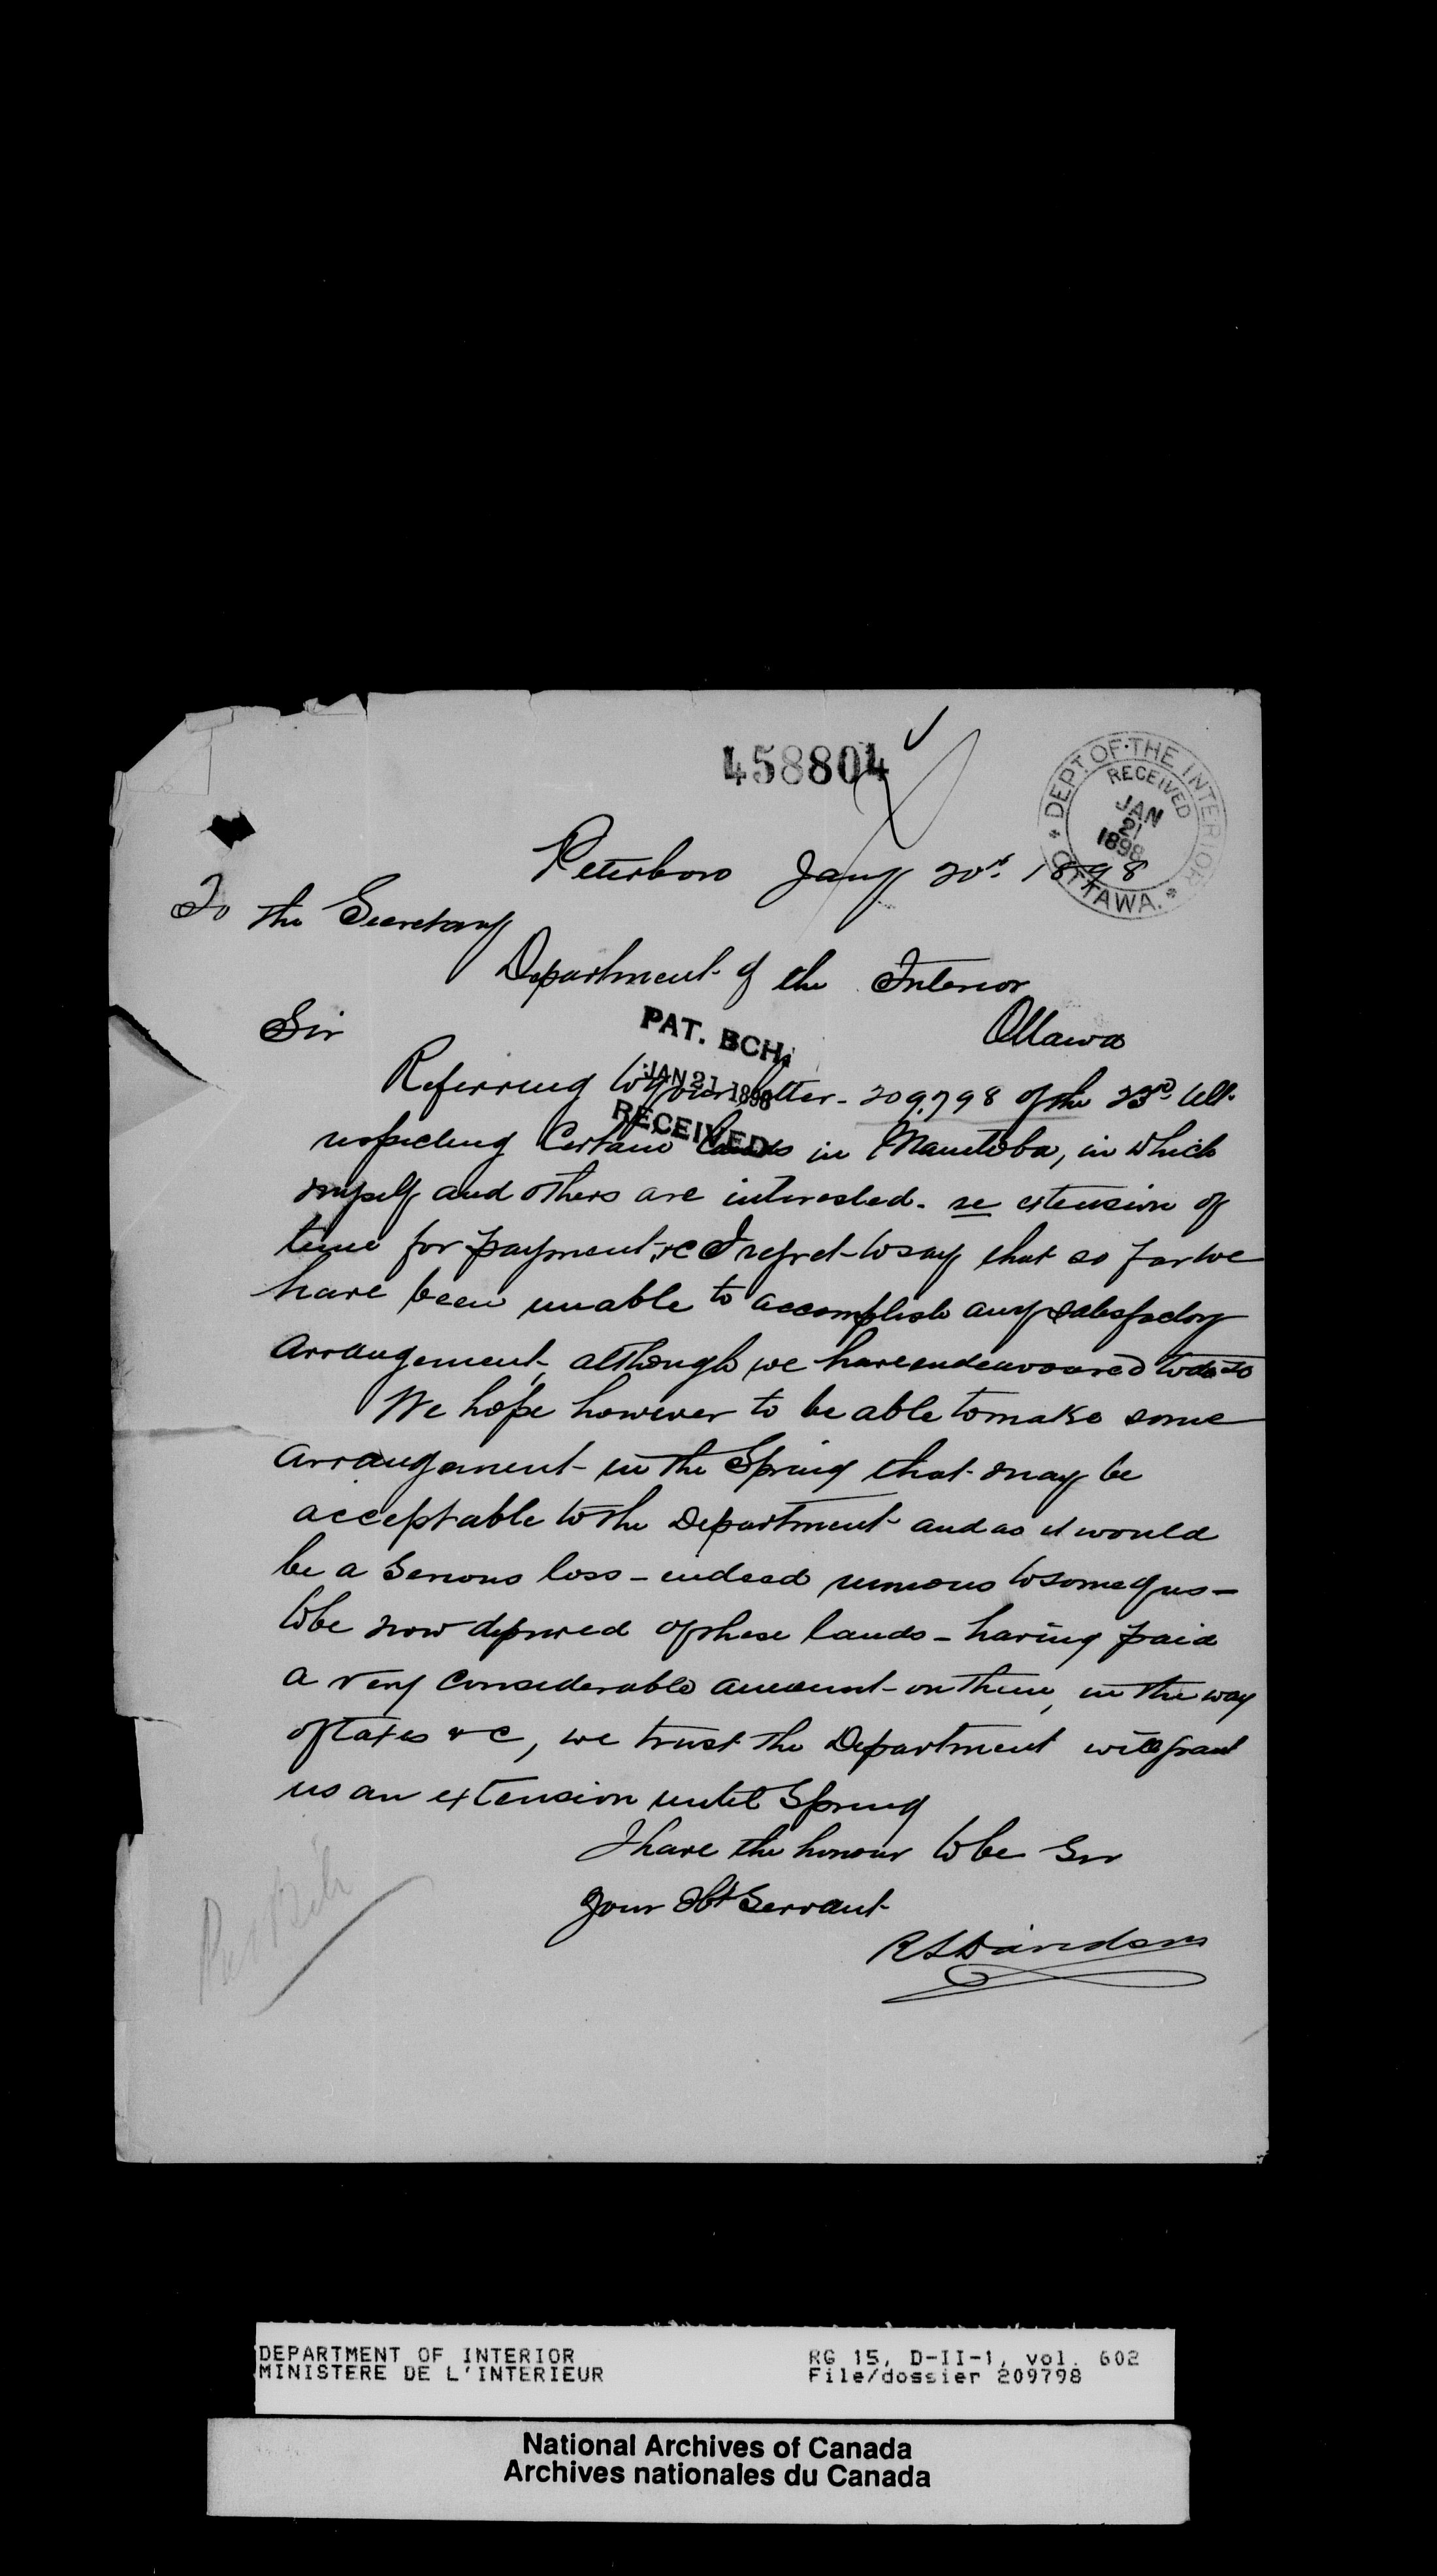 458804
DEPT. OF THE INTERIOR
RECEIVED
JAN
21
1898
OTTAWA.
Peterboro Jany 20th 1898
To the Secretary
Department of the Interior
Ottawa
Sir
PAT. BCH.
JAN 21 1898
RECEIVED
Referring to your letter - 209.798 of the 23rd Ult.
respecting Certain Lands in Manitoba, in which
myself and others are interested. re extension of
time for payment &c I regret to say that so far we
have been unable to accomplish any satisfactory
arrangement, although we have endeavoured to do so
We hope however to be able to make some
arrangement in the Spring that may be
acceptable to the Department and as it would
be a serious loss - indeed ruinous to some of us -
to be now deprived of these lands - having paid
a very considerable amount on them, in the way
of taxes &c, we trust the Department will grant
us an extension until Spring
I have the honour to be Sir
your Obt Servant
R S Davidson
DEPARTMENT OF INTERIOR
MINISTERE DE L'INTERIEUR
RG 15, D-II-1, vol. 602
File/dossier 209798
National Archives of Canada
Archives nationales du Canada